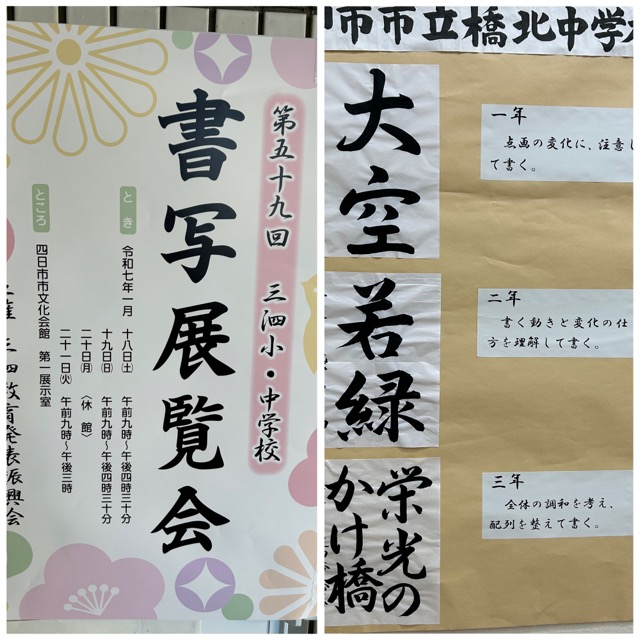 第五十九回 三泗小・中学校
書写展覧会
とき
令和七年一月 十八日(土) 午前九時〜午後四時三十分
十九日(日) 午前九時〜午後四時三十分
二十日(月) 〈休館〉
二十一日(火) 午前九時〜午後三時
ところ
四日市市文化会館 第一展示室
三泗教育発表振興会
市市立橋北中学
大空
一年
点画の変化に、注意し
て書く。
若緑
二年
書く動きと変化の仕
方を理解して書く。
栄光の
かけ橋
三年
全体の調和を考え、
配列を整えて書く。